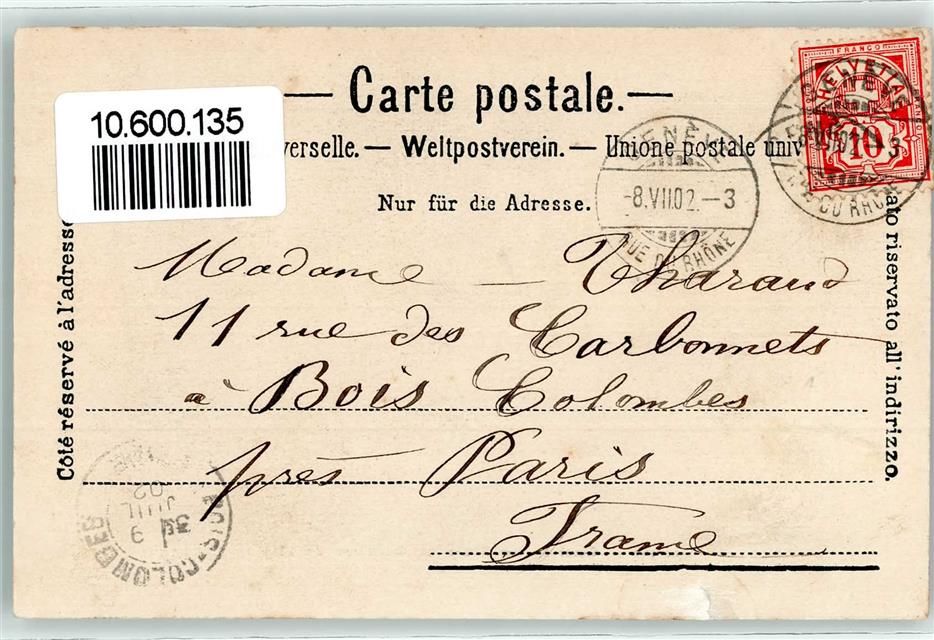 Carte postale.
10.600.135
verselle. — Weltpostverein. — Unione postale univ
Nur für die Adresse.
Côté réservé à l'adresse
ato riservato all' indirizzo.
FRANCO
HELVETIA
10
GENÈVE
-8.VII.02.-3
RUE DU RHÔNE
Madame — Tharaud
11 rue des Carbonnets
à Bois Colombes
près Paris
France
BOIS-COLOMBES
3E
9
JUIL
02